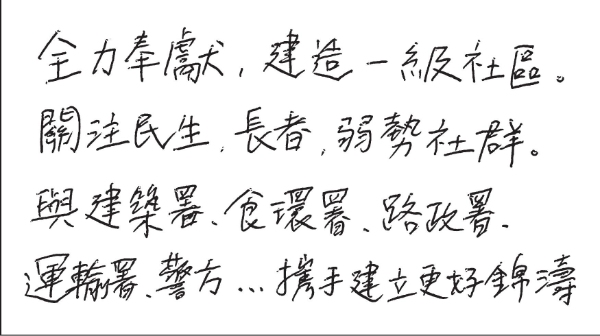 全力奉獻，建造一級社區。
關注民生，長者，弱勢社群。
與建築署、食環署、路政署、
運輸署、警方…攜手建立更好錦濤